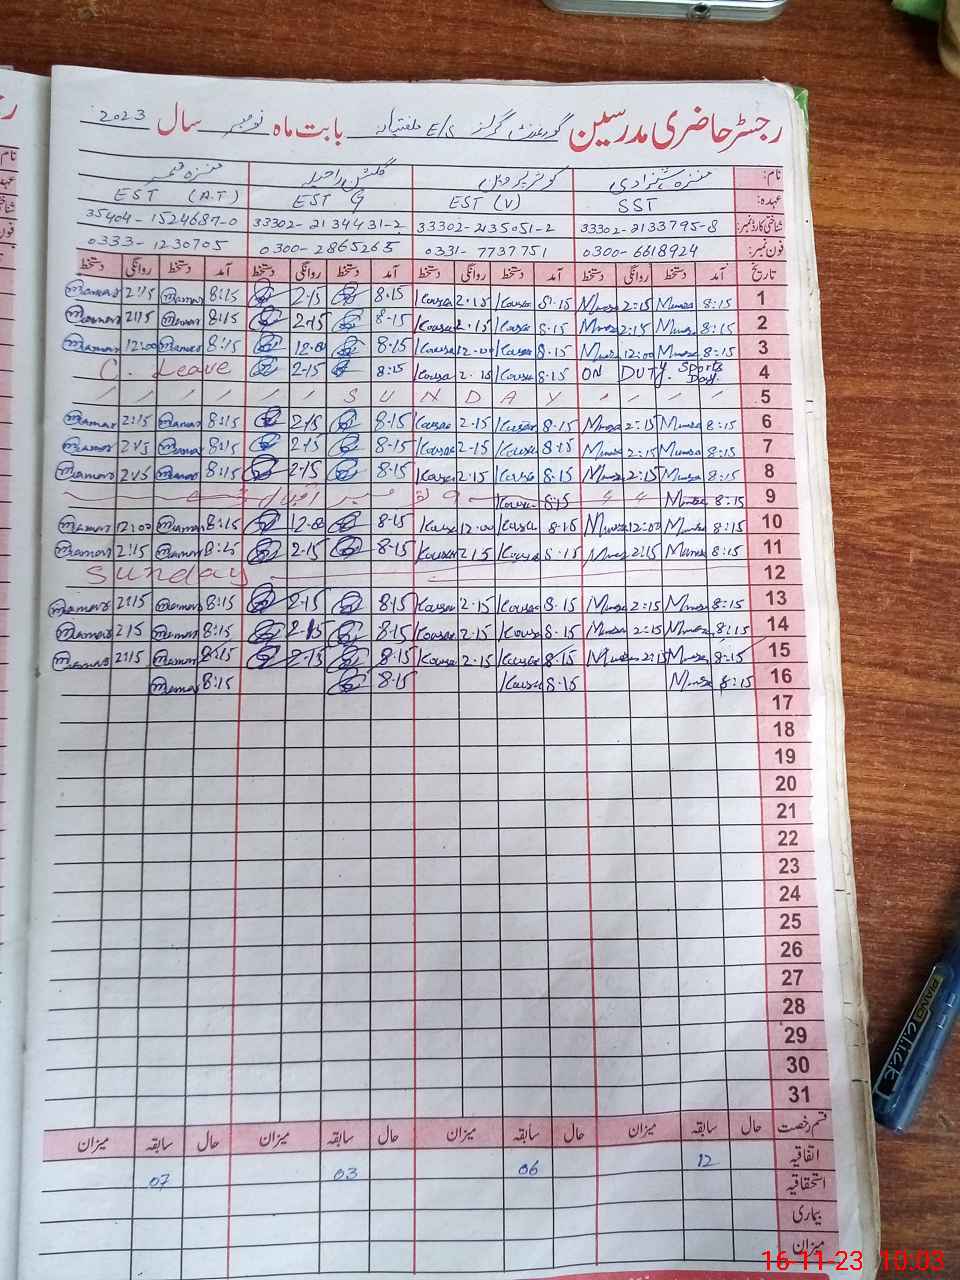 رجسٹر حاضری مدرسین گورنمنٹ گرلز E/S بابت ماہ نومبر سال 2023
نام: منزہ شہزادی کوثر پروین گلشن راحیلہ منزہ
عہدہ: SST EST (V) EST G EST (A.T)
شناختی کارڈ نمبر: 33302-2133795-8 33302-2135051-2 33302-2134431-2 35404-1524687-0
فون نمبر: 0300-6618924 0331-7737751 0300-2865265 0333-1230705
تاریخ آمد دستخط روانگی دستخط آمد دستخط روانگی دستخط آمد دستخط روانگی دستخط آمد دستخط روانگی دستخط
1 8:15 2:15 8.15 Kousar 2.15 Kousar 8.15 2.15 8:15 2:15
2 8:15 2:15 8.15 Kousar 2.15 Kousar 8.15 2.15 8:15 2:15
3 8:15 12:00 8.15 Kousar 12.00 Kousar 8.15 12.00 8:15 12:00
4 ON DUTY Sports Day. 8.15 Kousar 2.15 Kousar 8:15 2.15 C. Leave
5 S U N D A Y
6 8:15 2:15 8.15 Kousar 2.15 Kousar 8.15 2.15 8:15 2:15
7 8:15 2:15 8.15 Kousar 2.15 Kousar 8.15 2.15 8:15 2:15
8 8:15 2:15 8.15 Kousar 2.15 Kousar 8.15 2.15 8:15 2:15
9 8:15 8.15 Kousar 9 نومبر اقبال ڈے
10 8:15 12:00 8.15 Kousar 12.00 Kousar 8.15 12.00 8:15 12:00
11 8:15 2:15 8.15 Kousar 2.15 Kousar 8.15 2.15 8:15 2:15
12 Sunday
13 8:15 2:15 8.15 Kousar 2.15 Kousar 8.15 2.15 8:15 2:15
14 8:15 2:15 8.15 Kousar 2.15 Kousar 8.15 2.15 8:15 2:15
15 8:15 2:15 8.15 Kousar 2.15 Kousar 8.15 2.15 8:15 2:15
16 8:15 8.15 Kousar 8.15 8:15
17
18
19
20
21
22
23
24
25
26
27
28
29
30
31
قسم رخصت حال سابقہ میزان حال سابقہ میزان حال سابقہ میزان حال سابقہ میزان
اتفاقیہ 12 06 03 07
استحقاقیہ
بیماری
میزان
PIANO CLICK
16-11-23 10:03